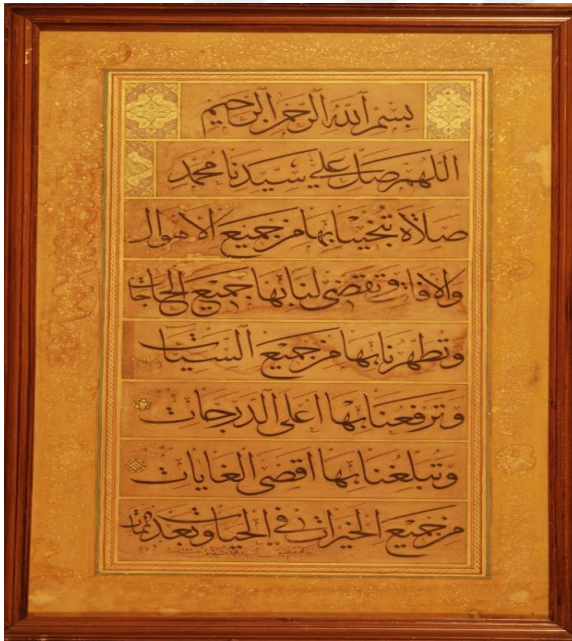 بسم الله الرحمن الرحيم
اللهم صل علي سيدنا محمد
صلاة تنجينا بها من جميع الاهوال
والافات وتقضى لنا بها جميع الحاجات
وتطهرنا بها من جميع السيئات
وترفعنا بها اعلى الدرجات
وتبلغنا بها اقصى الغايات
من جميع الخيرات في الحيات وبعد الممات